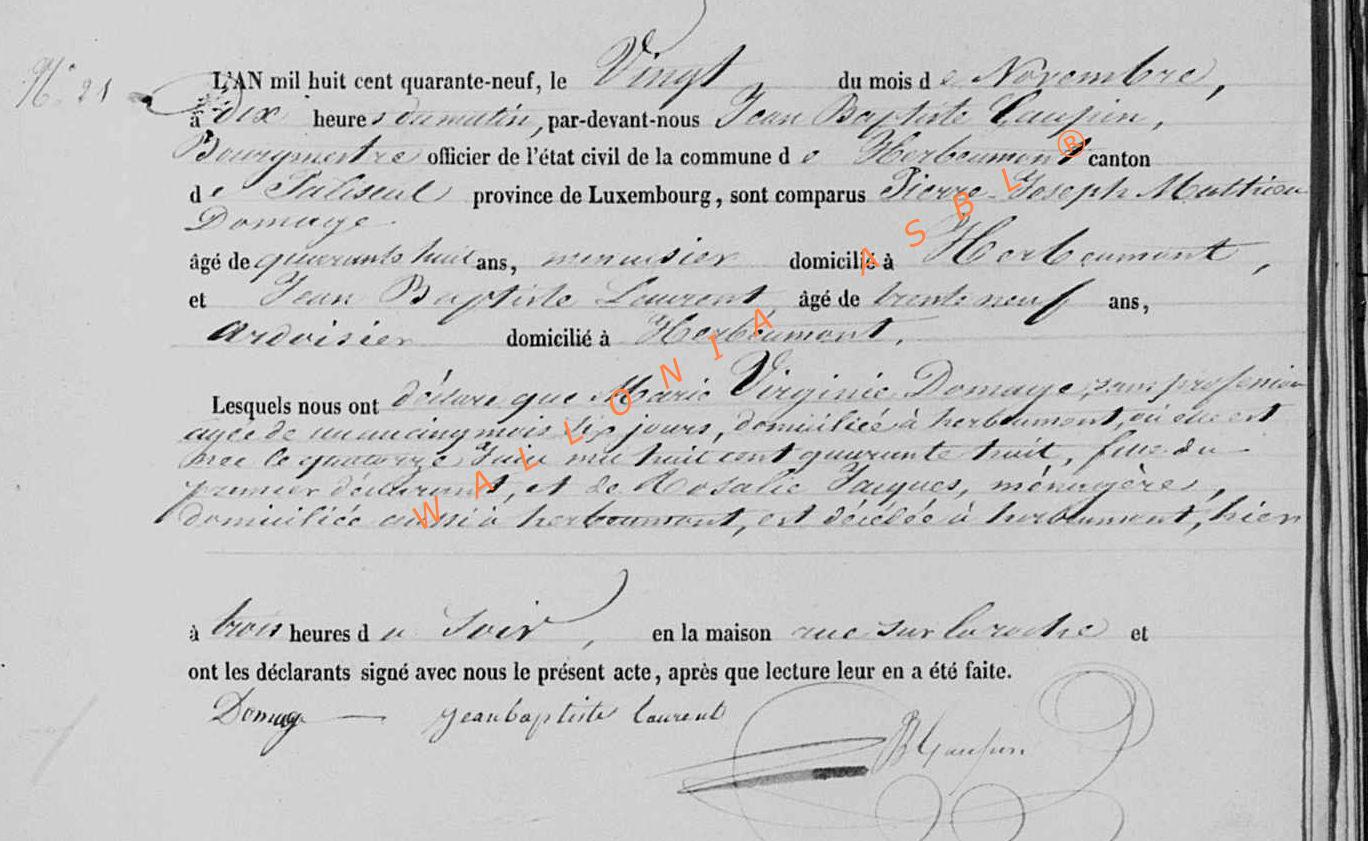 N° 21
L'AN mil huit cent quarante-neuf, le Vingt du mois de Novembre,
à dix heures du matin, par-devant-nous Jean Baptiste Laupin,
Bourgmestre officier de l'état civil de la commune de Herbeumont canton
de Paliseul province de Luxembourg, sont comparus Pierre-Joseph Matthieu
Domage
âgé de quarante huit ans, menuisier domicilié à Herbeumont,
et Jean Baptiste Laurent âgé de trente neuf ans,
ardoisier domicilié à Herbeumont.
Lesquels nous ont déclaré que Marie Virginie Domage, sans profession
agée de un an cinq mois six jours, domiciliée à herbeumont, où elle est
née le quatorze Juin mil huit cent quarante huit, fille du
premier déclarant, et de Rosalie Jacques, ménagère,
domiciliée aussi à herbeumont, est décédée à herbeumont, hier
à trois heures du Soir, en la maison rue sur la roche et
ont les déclarants signé avec nous le présent acte, après que lecture leur en a été faite.
Domage jeanbaptiste laurent
JB Laupin
WALLONIA ASBL ®